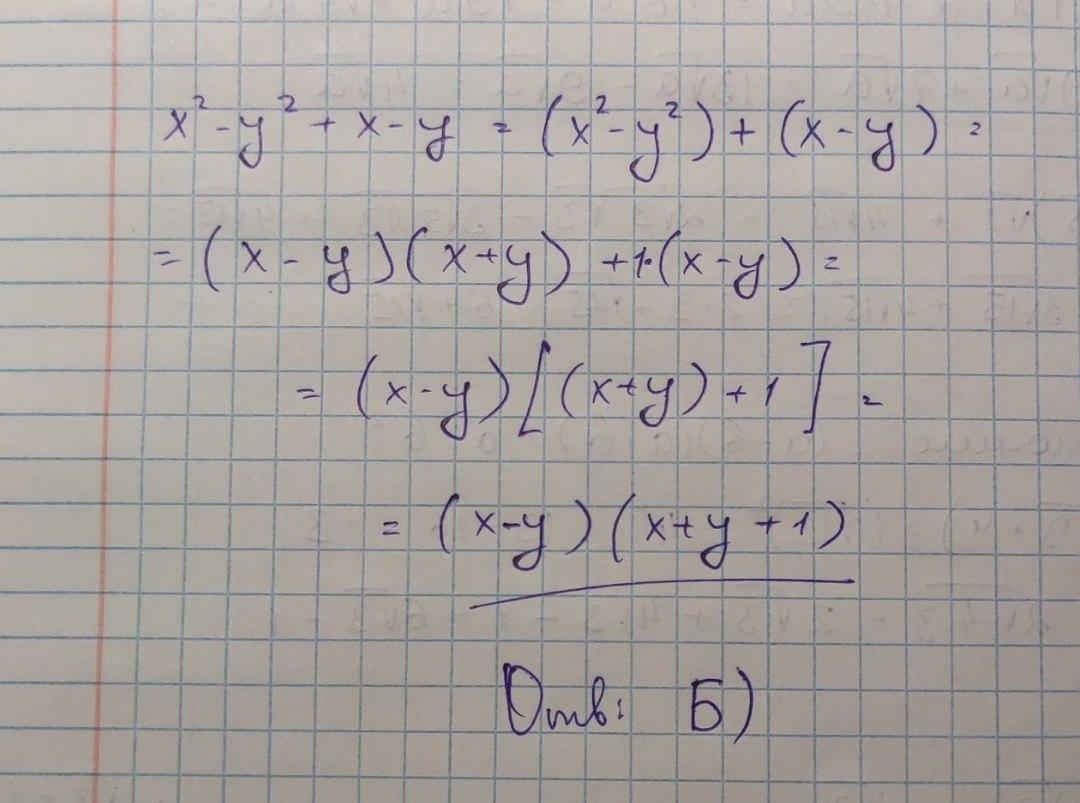 x² - y² + x - y = (x² - y²) + (x - y) =
= (x - y)(x + y) + 1·(x - y) =
= (x - y)[(x + y) + 1] =
= (x - y)(x + y + 1)
Отв: Б)